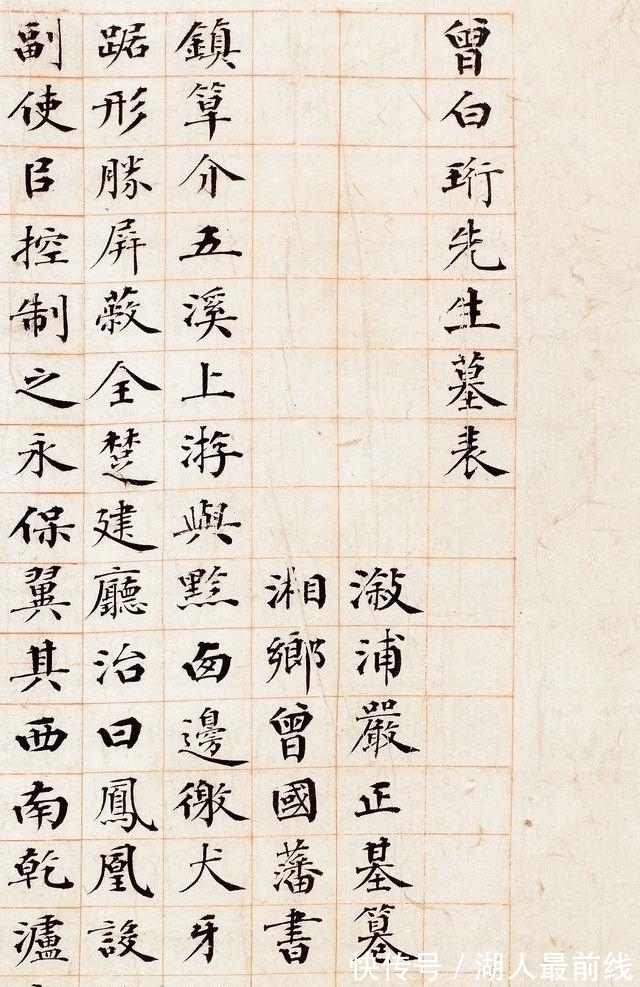 曾白珩先生墓表
溆浦嚴正基篹
湘鄉曾國藩書
鎮筸介五溪上游與黔邊徼犬牙
踞形勝屏蔽全楚建廳治曰鳳凰設
副使臣控制之永保翼其西南乾瀘
快传号 / 湖人最前线